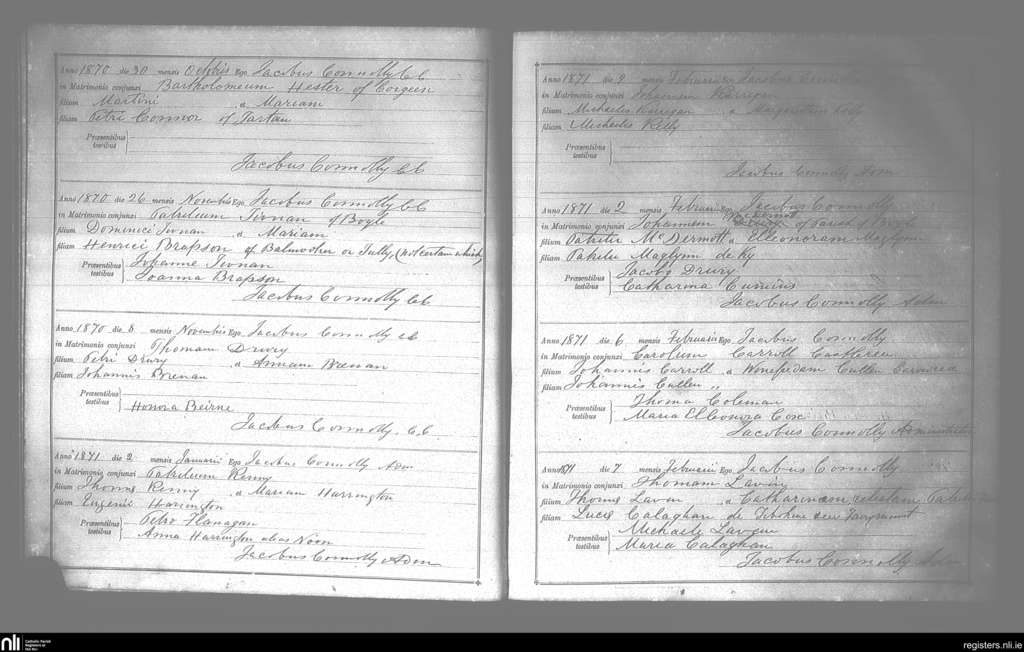 Anno 1870 die 30 mensis Octobris Ego Jacobus Connolly CC
in Matrimonio conjunxi Bartholomeum Hester of Corgeen
filium Martini a Mariam
filiam Petri Connor of Tartan
Præsentibus
testibus
Jacobus Connolly CC
Anno 1870 die 26 mensis Novembris Ego Jacobus Connolly CC
in Matrimonio conjunxi Patricium Tivnan of Boyle
filium Dominici Tivnan a Mariam
filiam Henrici Brapson of or Tully, (not certain which)
Præsentibus Johanne Tivnan
testibus Joanna Brapson
Jacobus Connolly CC
Anno 1870 die 8 mensis Novembris Ego Jacobus Connolly CC
in Matrimonio conjunxi Thomam Drury
filium Petri Drury a Annam Brenan
filiam Johannis Brenan
Præsentibus
testibus Honora Beirne
Jacobus Connolly. CC.
Anno 1871 die 2 mensis Januarii Ego Jacobus Connolly Adm
in Matrimonio conjunxi Patricium Kenny
filium Thomas Kenny a Mariam Harrington
filiam Eugenii Harrington
Præsentibus Petro Flanagan
testibus Anna Harrington alias Noon
Jacobus Connolly Adm
Anno 1871 die 2 mensis Februarii Ego Jacobus Connolly
in Matrimonio conjunxi Johannem Kerrigan
filium Michaelis Kerrigan a Margaritam Kelly
filiam Michaelis Kelly
Præsentibus
testibus
Jacobus Connolly Adm
Anno 1871 die 2 mensis Februarii Ego Jacobus Connolly
in Matrimonio conjunxi Johannem McDermott of Parish of Boyle
filium Patritii McDermott a Elleonoram Maglynn
filiam Patritii Maglynn de
Præsentibus Jacobo Drury
testibus Catharina Cumins
Jacobus Connolly Adm
Anno 1871 die 6 mensis Februarii Ego Jacobus Connolly
in Matrimonio conjunxi Carolum Carroll Castlerea
filium Johannis Carroll a Winefredam Cullen
filiam Johannis Cullen "
Præsentibus Thoma Coleman
testibus Maria Elleonora Cox
Jacobus Connolly Administrator
Anno 1871 die 7 mensis Februarii Ego Jacobus Connolly
in Matrimonio conjunxi Thomam Lavin
filium Thomas Lavan a Catharinam
filiam Lucae Calaghan de
Præsentibus Michaele
testibus Maria Calaghan
Jacobus Connolly Adm
nli
Catholic Parish
Registers at
the NLI
registers.nli.ie